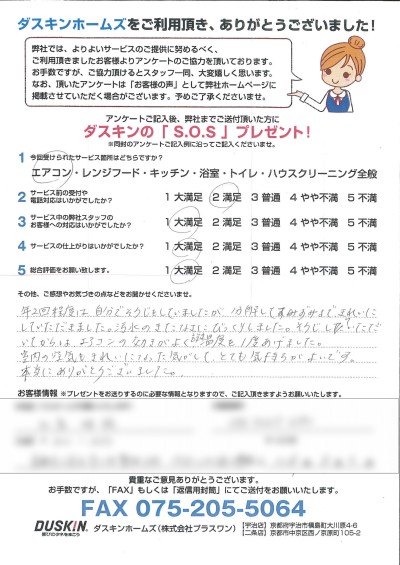 ダスキンホームズをご利用頂き、ありがとうございました!
弊社では、よりよいサービスのご提供に努めるべく、
ご利用頂きましたお客様よりアンケートのご協力を頂いております。
お手数ですが、ご協力頂けるとスタッフ一同、大変嬉しく思います。
なお、頂いたアンケートは「お客様の声」として弊社ホームページに
掲載させていただく場合がございます。予めご了承くださいませ。
アンケートご記入後、弊社までご送付頂いた方に
ダスキンの「S.O.S」プレゼント!
※同封のアンケートご記入例に沿ってご記入くださいませ。
1 今回受けられたサービス箇所はどちらですか?
エアコン・レンジフード・キッチン・浴室・トイレ・ハウスクリーニング全般
2 サービス前の受付や
電話対応はいかがでしたか? 1 大満足 2 満足 3 普通 4 やや不満 5 不満
3 サービス中の弊社スタッフの
お客様への対応はいかがでしたか? 1 大満足 2 満足 3 普通 4 やや不満 5 不満
4 サービスの仕上がりはいかがでしたか? 1 大満足 2 満足 3 普通 4 やや不満 5 不満
5 総合評価をお願い致します。 1 大満足 2 満足 3 普通 4 やや不満 5 不満
その他、ご感想やお気づきの点などをお聞かせくださいませ。
年2回程度は自分でそうじをしていましたが、分解してすみずみまできれいに
していただきました。汚水のきたなさにびっくりしました。そうじして
いただいてからは、エアコンの効きがよく設定温度も1度あげました。
室内の空気もきれいになった気がして、とても気持ちがよいです。
本当にありがとうございました。
お客様情報 ※プレゼントをお送りするのに必要な情報となりますので、ご記入頂きますようお願いいたします。
貴重なご意見ありがとうございます。
お手数ですが、「FAX」もしくは「返信用封筒」にてご送付をお願いいたします。
FAX 075-205-5064
DUSKIN 喜びのタネをまこう
ダスキンホームズ(株式会社プラスワン)
【宇治店】京都府宇治市槇島町大川原4-6
【二条店】京都市中京区西ノ京原町105-2